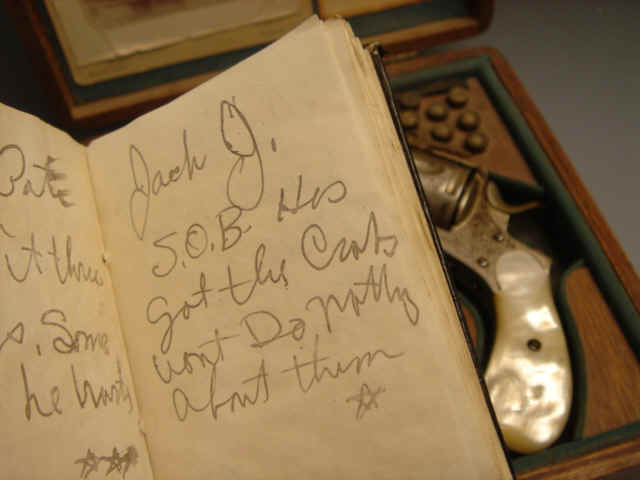 Jack J.
S.O.B. Has
got the Crabs
wont Do Nothing
about them
Pate
it thru
s, Some
he wants